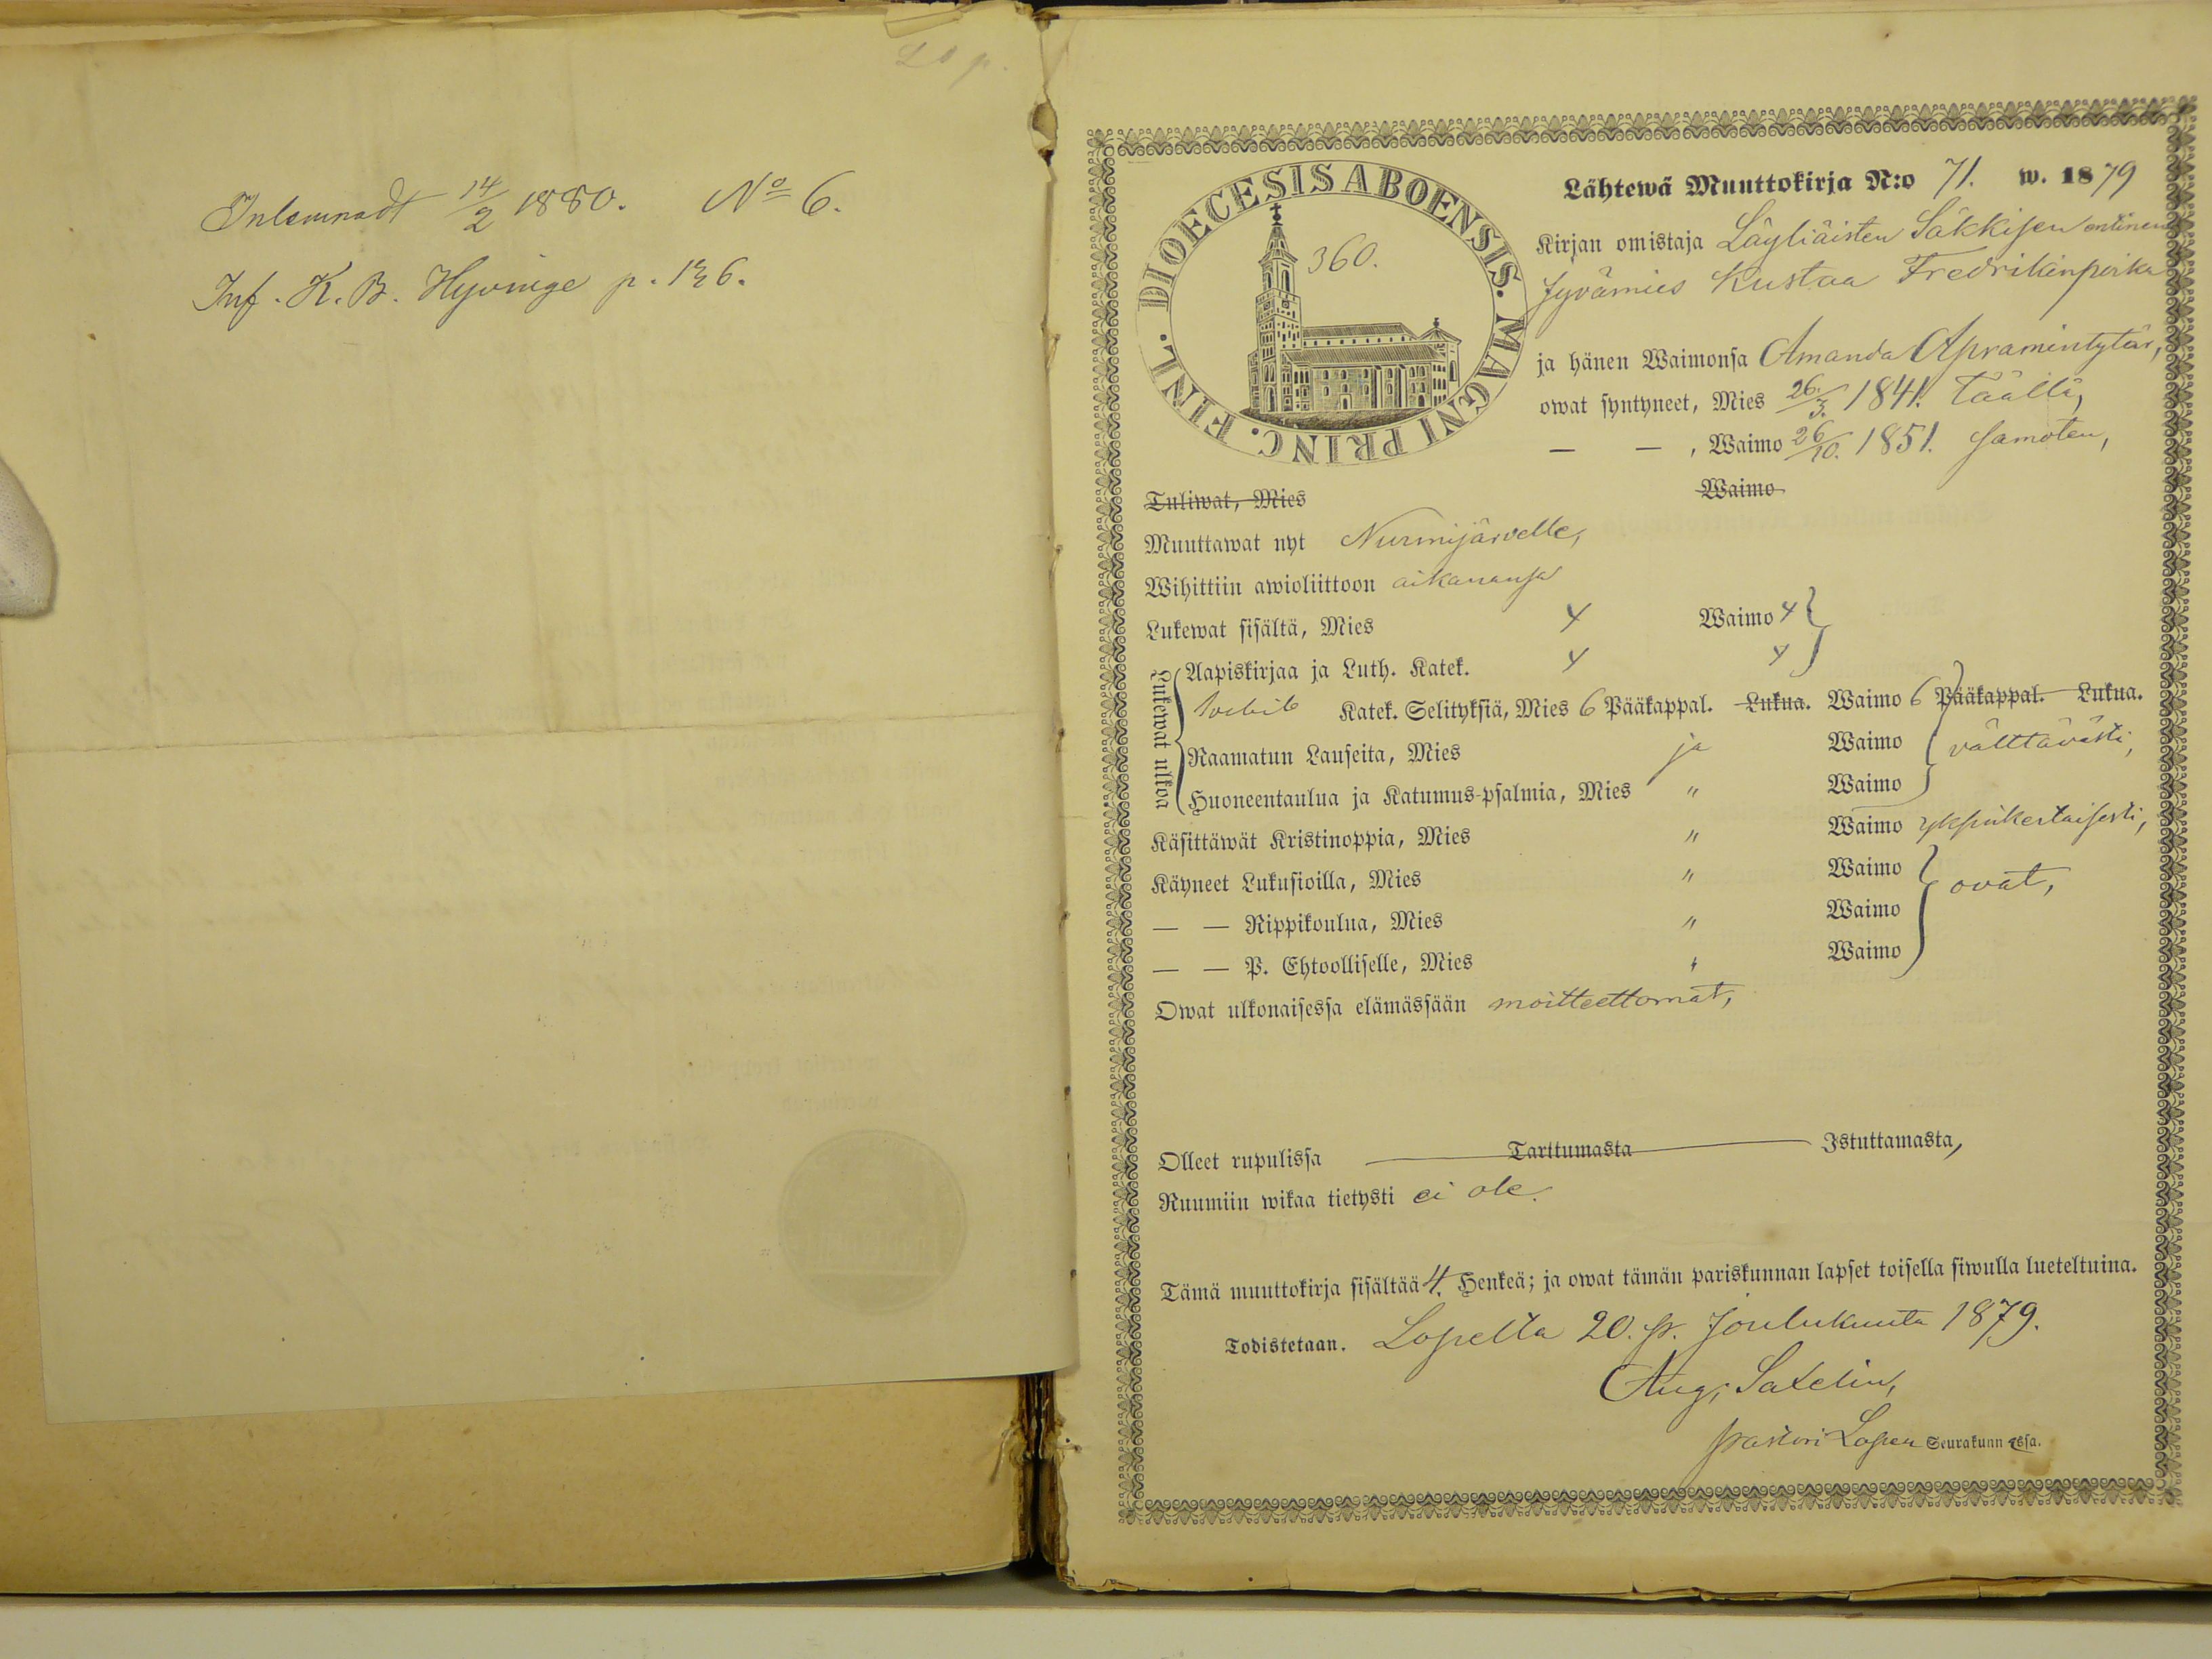 Lop.
Inlemnadt 14/2 1880. No 6.
Inf. K. B. Hyvinge p. 136.
DIOECESIS ABOENSIS. MAGNI PRINC. FINL.
360.
Lähtewä Muuttokirja N:o 71. w. 1879
Kirjan omistaja Läyliäisten Säkkisen entinen
Jyvämies Kustaa Fredrikinpoika
ja hänen Waimonsa Amanda Apramintytär,
owat syntyneet, Mies 26/3. 1841. Täällä,
— — , Waimo 26/10. 1851. samoten,
Tuliwat, Mies Waimo
Muuttawat nyt Nurmijärvelle,
Wihittiin awioliittoon aikanansa
Lukewat sisältä, Mies Waimo
Lukewat ulkoa
Aapiskirjaa ja Luth. Katek.
Katek. Selityksiä, Mies 6 Pääkappal. Lukua. Waimo 6 Pääkappal. Lukua.
Raamatun Lauseita, Mies ja Waimo välttävästi,
Huoneentaulua ja Katumus-psalmia, Mies " Waimo
Käsittäwät Kristinoppia, Mies " Waimo yksinkertaisesti,
Käyneet Lukusioilla, Mies " Waimo ovat,
— — Rippikoulua, Mies " Waimo
— — P. Ehtoolliselle, Mies " Waimo
Owat ulkonaisessa elämässään moitteettomat,
Olleet rupulissa Tarttumasta Istuttamasta,
Ruumiin wikaa tietysti ei ole.
Tämä muuttokirja sisältää 4. Henkeä; ja owat tämän pariskunnan lapset toisella siwulla lueteltuina.
Todistetaan. Lopelta 20. p. Joulukuuta 1879.
Aug. Saxelin,
pastori Lopen Seurakunnassa.